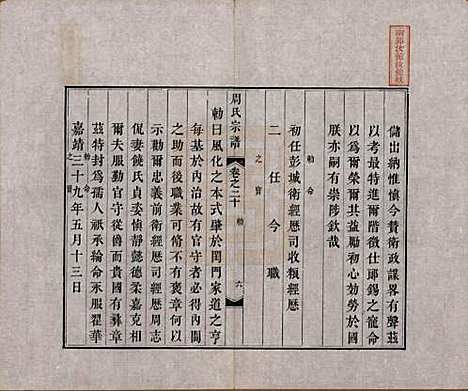 儲出納惟慎今贊衛政謀畧有聲茲
以考最特進爾階徵仕郎錫之寵命
以爲爾榮其益勵初心効勞於國
朕亦嗣有崇陟欽哉
勅命
之寶
初任彭城衛經歷司收糧經歷
二任今職
周氏宗譜
卷之二十
勅
六
勅曰風化之本式肇於閨門家道之亨
每基於內治故有官守者必得內閫
之助而後職業可脩不有褒章何以
示勸爾忠義前衛經歷司經歷周志
侃妻饒氏貞婺靜懿德柔嘉克相
爾夫服勤官守從爵而貴國有彝章
茲特封爲孺人祇承綸命永服翟華
勅命
之寶
嘉靖三十九年五月十三日